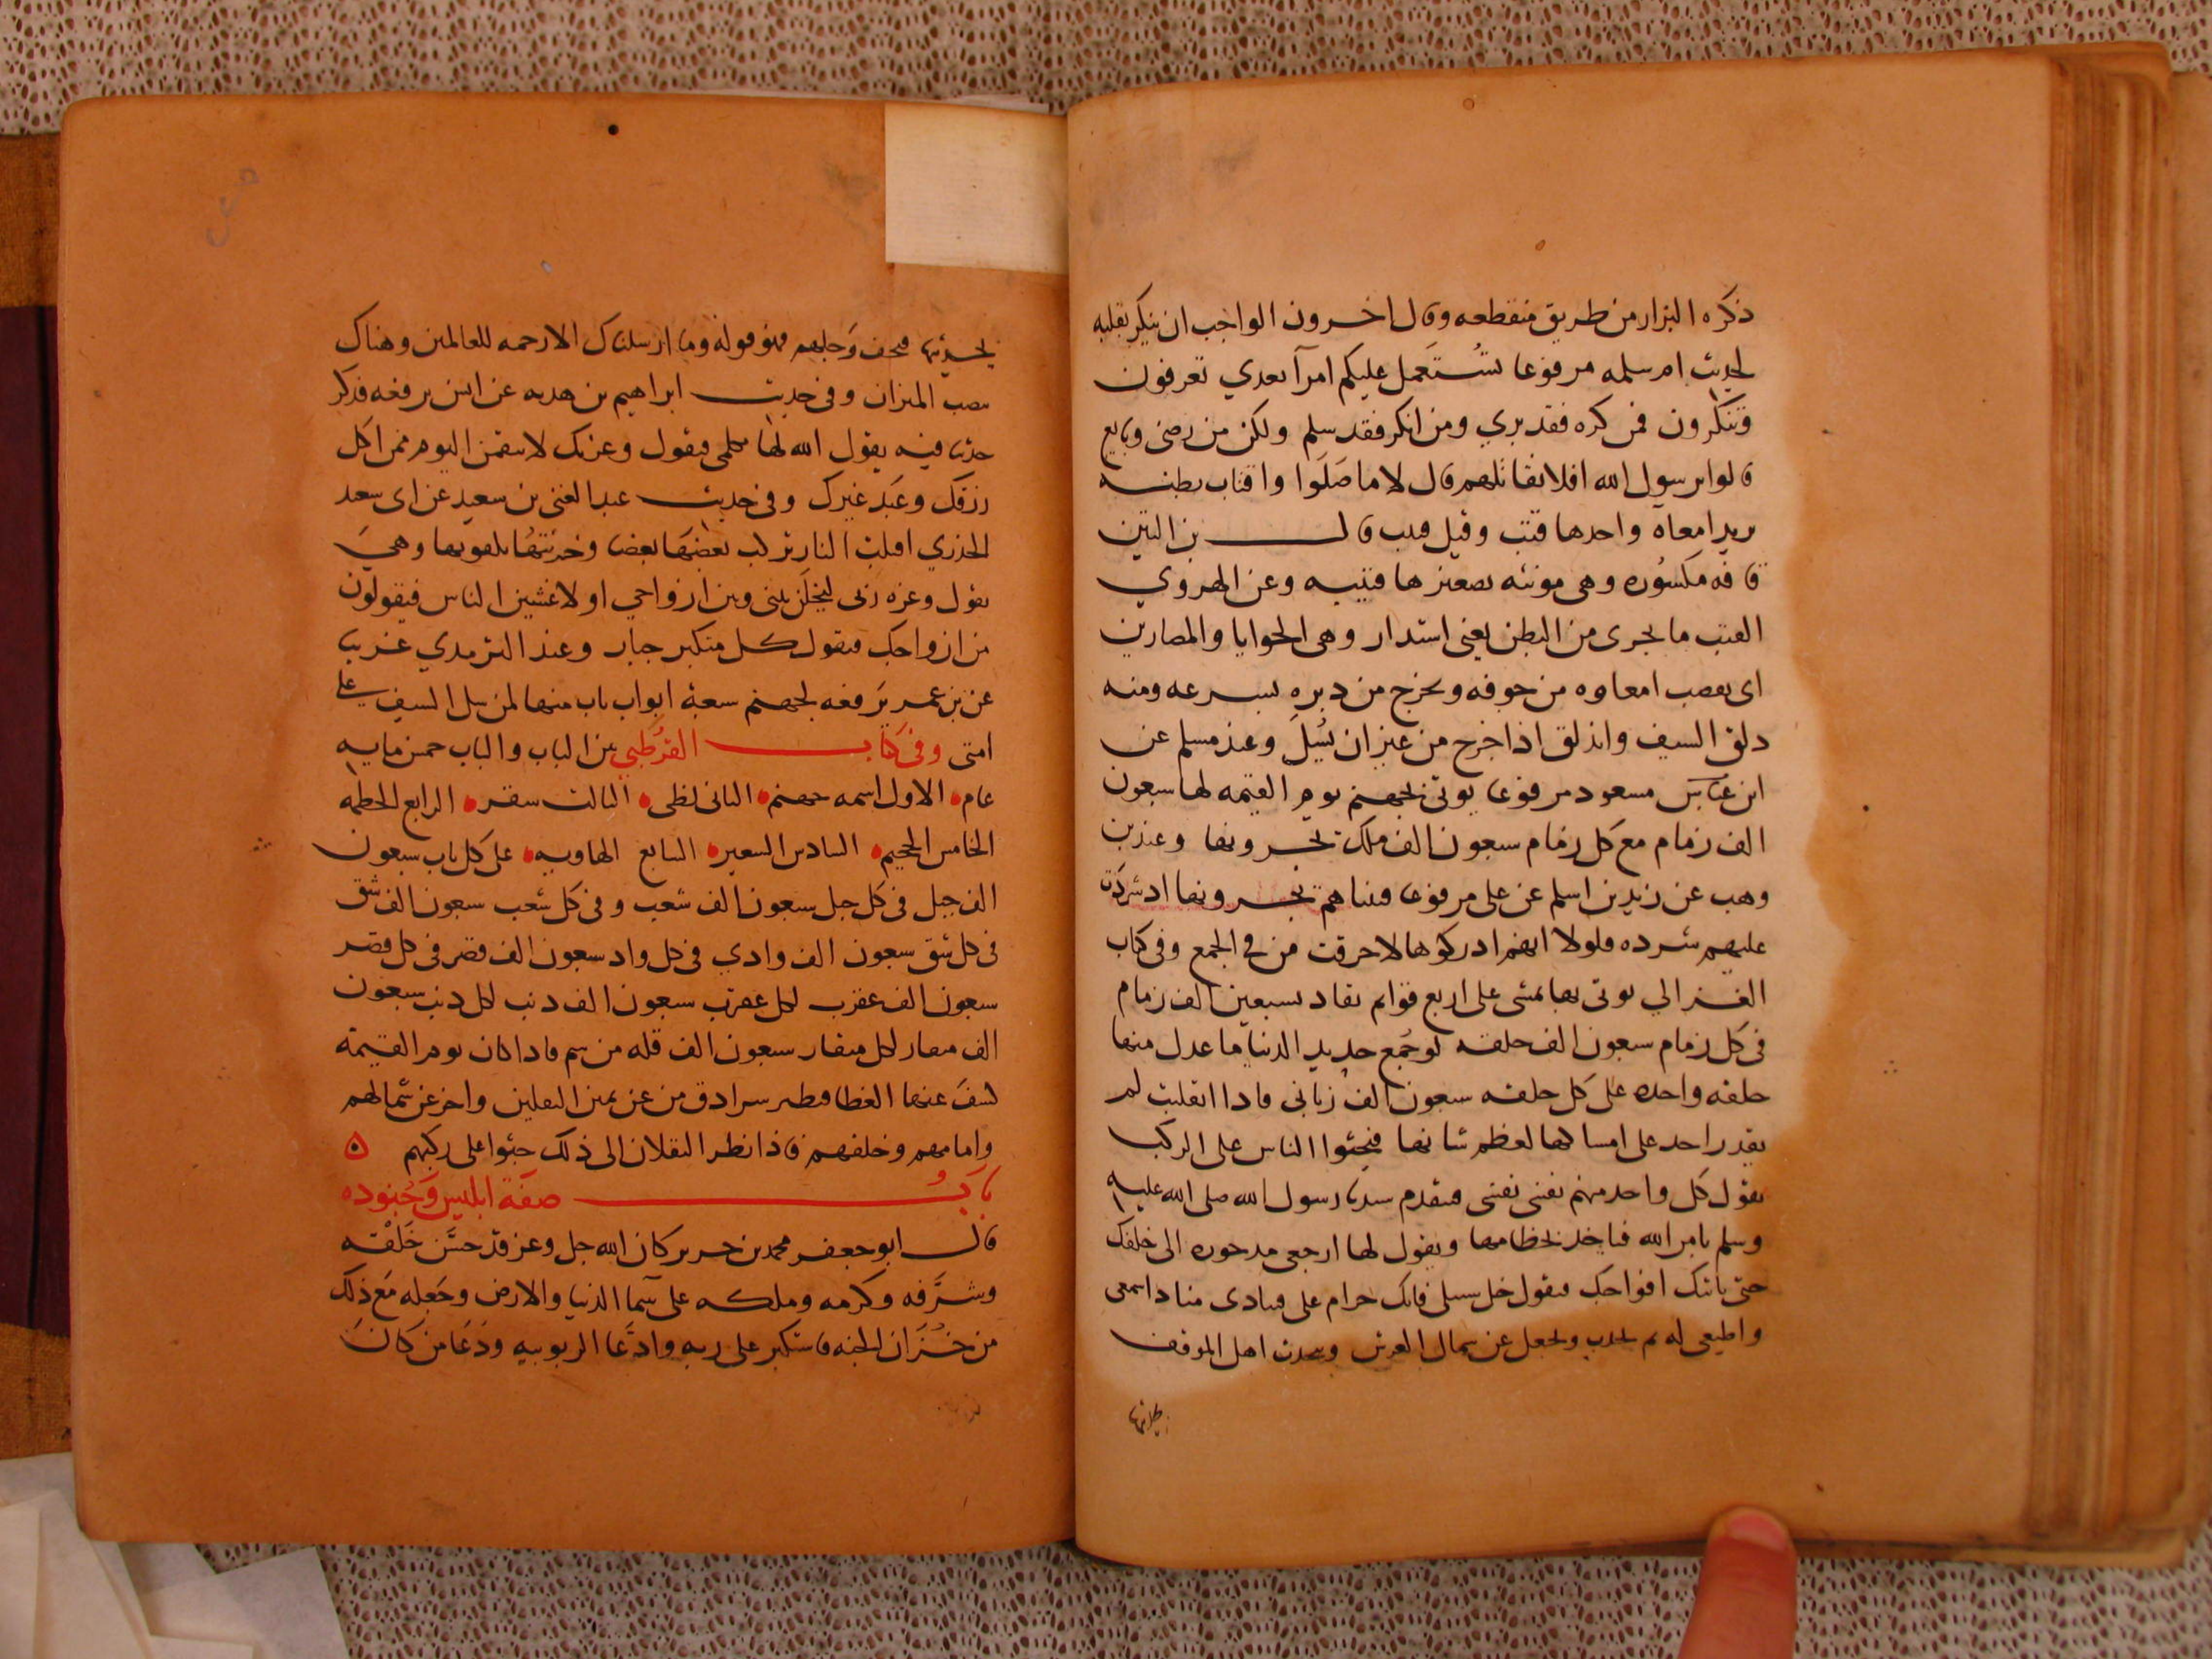 ذكره البزار من طريق منقطعه وقال اخرون الواجب ان ينكر بقلبه
لحديث ام سلمه مرفوعا تستعمل عليكم امرآ بعدي تعرفون
وتنكرون فمن كره فقد بري ومن انكر فقد سلم ولكن من رضى وتابع
قالوا يرسول الله افلا نقاتلهم قال لا ما صَلَوا واقتاب بطنه
يريد امعاه واحدها قتب وقيل قلب قال بن التين
قافه مكسُوره وهى مونثه تصغيرها قتيبه وعن الهروي
القتب ما تحوى من البطن يعنى استدار وهى الحوايا والمصارين
اى يعصب امعاوه من جوفه وتخرج من دبره بسرعه ومنه
دلق السيف واندلق اذا خرج من غير ان يُسَل وعند مسلم عن
ابن مسعود مرفوعا يوتى بجهنم يوم القيمه لها سبعون
الف زمام مع كل زمام سبعون الف ملك يجرونها وعند بن
وهب عن زيد بن اسلم عن على مرفوعا فبيناهم يجرونها اد شردت
عليهم شرده فلولا انهم ادركوها لاحرقت من فى الجمع وفى كتاب
الغزالي يوتى بها تمشى على اربع قوايم تقاد بسبعين الف زمام
فى كل زمام سبعون الف حلقه لو جُمع حديد الدنيا ما عدل منها
حلقه واحده على كل حلقه سبعون الف زبانى فادا انقلبت لم
يقدر احد على امساكها لعظم شانها فيجثوا الناس على الركب
يقول كل واحد منهم نفسى نفسى فيتقدم سيدنا رسول الله صلى الله عليه
وسلم بامر الله فياخد بخطامها ويقول لها ارجعى مدحوره الى خلفك
حتى ياتيك افواجك فيقول خل سبيلى فانك حرام على فينادى مناد اسمعى
واطيعى له ثم تجدب وتجعل عن شمال العرش ويتحدث اهل الموقف
بجديثها
بجديثها فيخف وَجلهم فهو قوله وما ارسلناك الا رحمه للعالمين وهناك
ينصب الميزان وفى حديث ابراهيم بن هدبه عن انس يرفعه فدكر
حديثا فيه يقول الله لها تكلمى فيقول وعزتك لانتقمن اليوم ممن اكل
رزقك وعَبد غيرك وفى حديث عبد الغنى بن سعيد عن ابى سعيد
الخدري اقبلت النار يركب بعضُها بعضا وخزنتُها يكفونها وهى
تقول وعزه ربى ليخلَن بينى وبين ازواجي او لاغشين الناس فيقولون
من ازواجك فيقول كل متكبر جبار وعند الترمدي غريب
عن بن عمر يرفعه لجهنم سبعة ابواب باب منها لمن سل السيف على
امتى وفى كتاب القرُطبي بين الباب والباب خمس مايه
عام الاول اسمه جهنم الثانى لظى الثالث سقر الرابع الحطمه
الخامس الجحيم السادس السعير السابع الهاويه على كل باب سبعون
الف جبل فى كل جبل سبعون الف شعب وفى كل شعب سبعون الف شق
فى كل شق سبعون الف وادي فى كل واد سبعون الف قصر فى كل قصر
سبعون الف عقرب لكل عقرب سبعون الف دنب لكل دنب سبعون
الف مفار لكل مفار سبعون الف قله من سم فادا كان يوم القيمة
كشف عنها الغطا فيطير سرادق من عن يمين الثقلين واخر عن شمالهم
وامامهم وخلفهم فاذا نظر الثقلان الى ذلك جثوا على ركبهم
بابُ صفَة ابليس وَجُنوده
قال ابو جعفر محمد بن جرير كان الله جل وعز قد حسَّن خَلقه
وشرَّفه وكرمه وملكه على سَما الدنيا والارض وجَعله مَع ذلك
من خُزَّان الجنه فاستكبر على ربه وادَّعا الربوبيه ودَعَا من كانَ